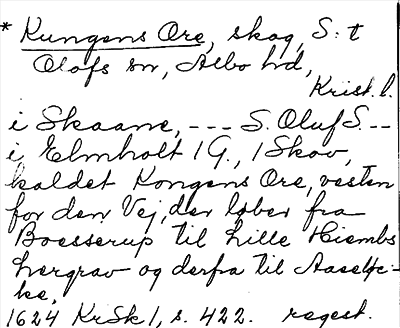 * Kungens Ore, skog, S:t
Olofs sn, Albo hd,
Krist. l.
i Skaane, --- S. Oluf S. --
i Elmholt 1 G., 1 Skov,
kaldet Kongens Ore, vesten
for den Vej, der løber fra
Boesserup til Lille Hiembs
hergrav og derfra til
1624 KrSk 1, s. 422. regest.